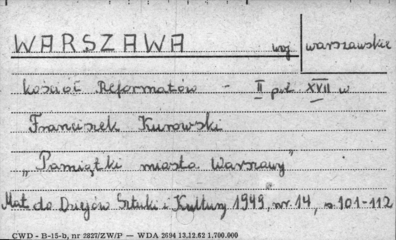 WARSZAWA woj. warszawskie
kościół Reformatów - II poł. XVII w
Franciszek Kurowski
"Pamiątki miasta Warszawy"
Mat. do Dziejów Sztuki i Kultury 1949, nr. 14, s. 101-112
CWD - B-15-b, nr 2827/ZW/P — WDA 2694 13.12.62 1.700.000